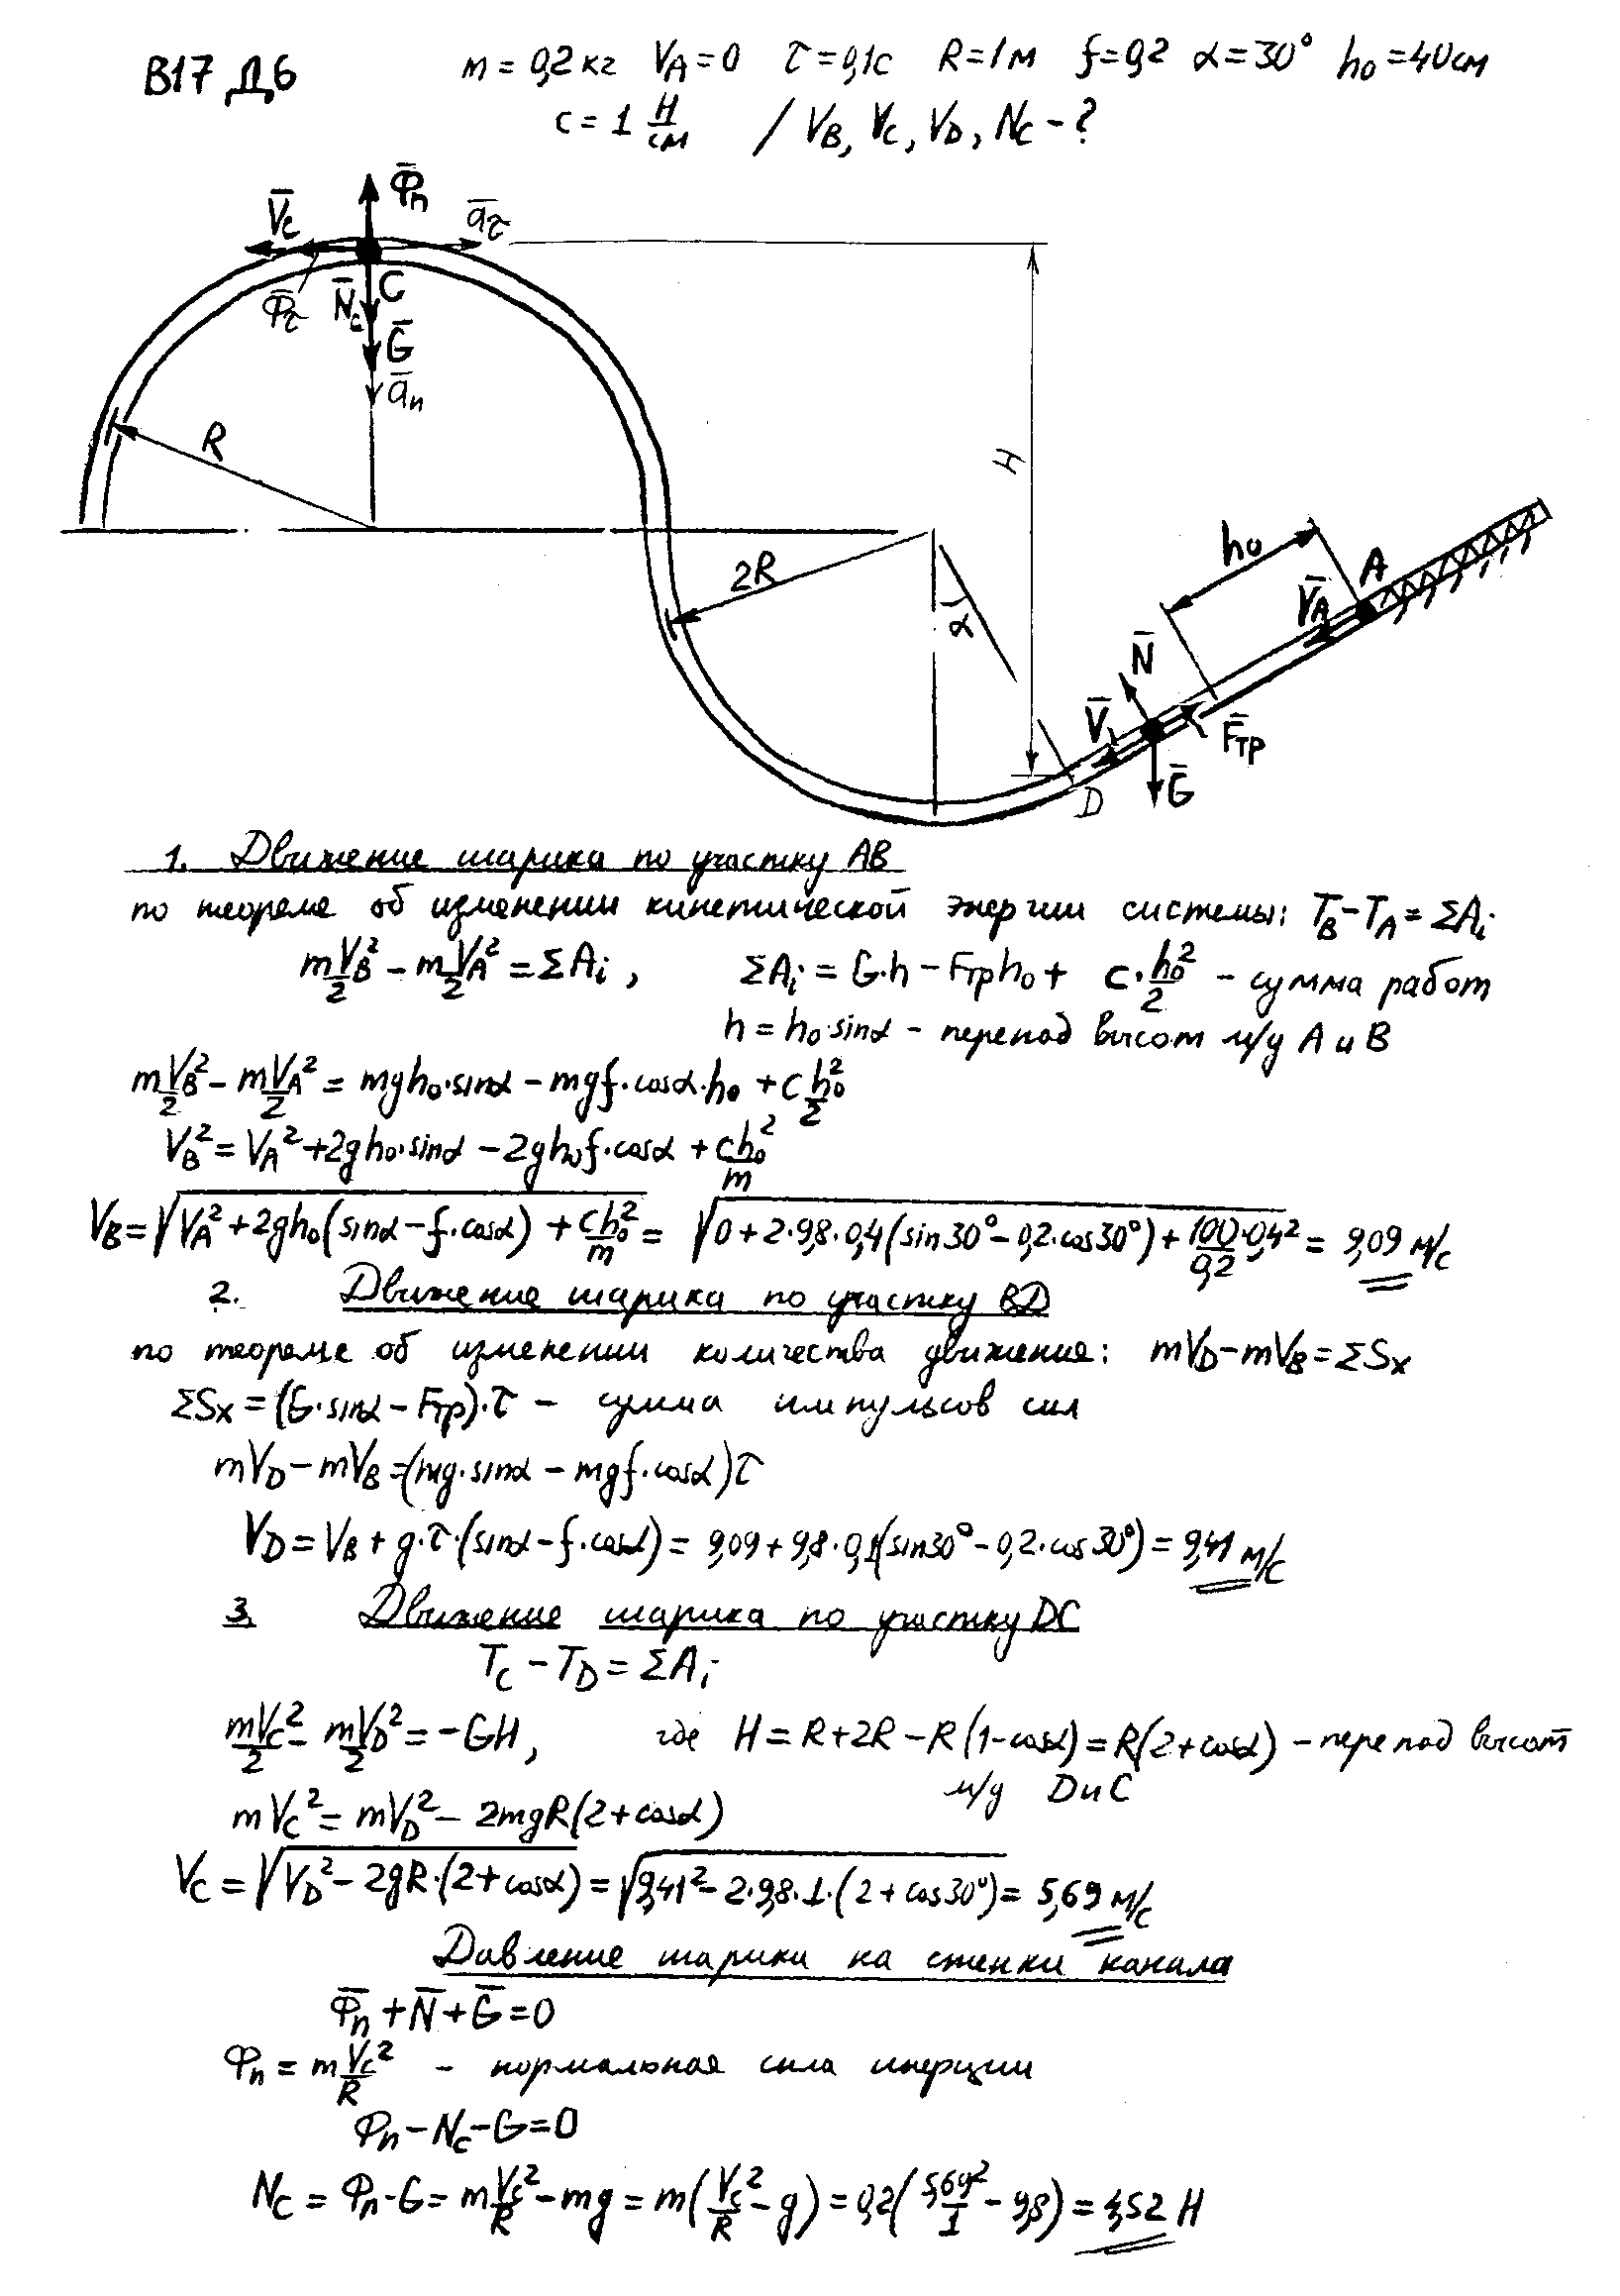 В17 Д6 m = 0,2 кг V_A = 0 τ = 0,1 с R = 1 м f = 0,2 α = 30° h₀ = 40 см
c = 1 Н/см / V_B, V_C, V_D, N_C - ?
Φ̄n
V̄c āτ
Φ̄τ N̄c C
Ḡ
ān
R
H
2R
α
h₀
A
V̄_A
N̄
V̄
F̄тр
D Ḡ
1. Движение шарика по участку AB
по теореме об изменении кинетической энергии системы: T_B - T_A = ΣAi
mV_B²/2 - mV_A²/2 = ΣAi, ΣAi = G·h - Fтр h₀ + c·h₀²/2 - сумма работ
h = h₀·sinα - перепад высот м/у A и B
mV_B²/2 - mV_A²/2 = mgh₀·sinα - mgf·cosα·h₀ + c h₀²/2
V_B² = V_A² + 2gh₀·sinα - 2gh₀f·cosα + ch₀²/m
V_B = √(V_A² + 2gh₀(sinα - f·cosα) + ch₀²/m) = √(0 + 2·9,8·0,4(sin30° - 0,2·cos30°) + 100/0,2·0,4²) = 9,09 м/с
2. Движение шарика по участку BD
по теореме об изменении количества движения: mV_D - mV_B = ΣSx
ΣSx = (G·sinα - Fтр)·τ - сумма импульсов сил
mV_D - mV_B = (mg·sinα - mgf·cosα)τ
V_D = V_B + g·τ·(sinα - f·cosα) = 9,09 + 9,8·0,1(sin30° - 0,2·cos30°) = 9,41 м/с
3. Движение шарика по участку DC
T_C - T_D = ΣAi
mV_C²/2 - mV_D²/2 = -GH, где H = R + 2R - R(1-cosα) = R(2+cosα) - перепад высот
м/у D и C
mV_C² = mV_D² - 2mgR(2+cosα)
V_C = √(V_D² - 2gR·(2+cosα)) = √(9,41² - 2·9,8·1·(2+cos30°)) = 5,69 м/с
Давление шарика на стенки канала
Φ̄n + N̄ + Ḡ = 0
Φn = mV_C²/R - нормальная сила инерции
Φn - N_C - G = 0
N_C = Φn - G = mV_C²/R - mg = m(V_C²/R - g) = 0,2(5,69²/1 - 9,8) = 4,52 Н